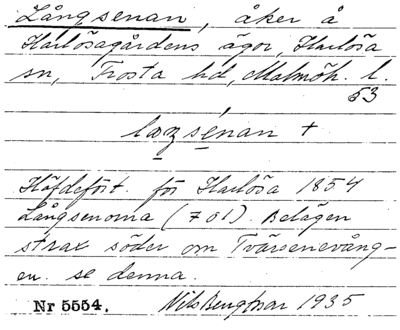 Långsenan, åker å
Harlösagårdens ägor, Harlösa
sn, Frosta hd, Malmöh. l.
53
laŋsénan +
Häfdeført. för Harlösa 1854
Långsenorna (701). Belägen
strax söder om Tvärsenevång-
en. se denna.
Nr 5554. Nils Bengtsson 1935